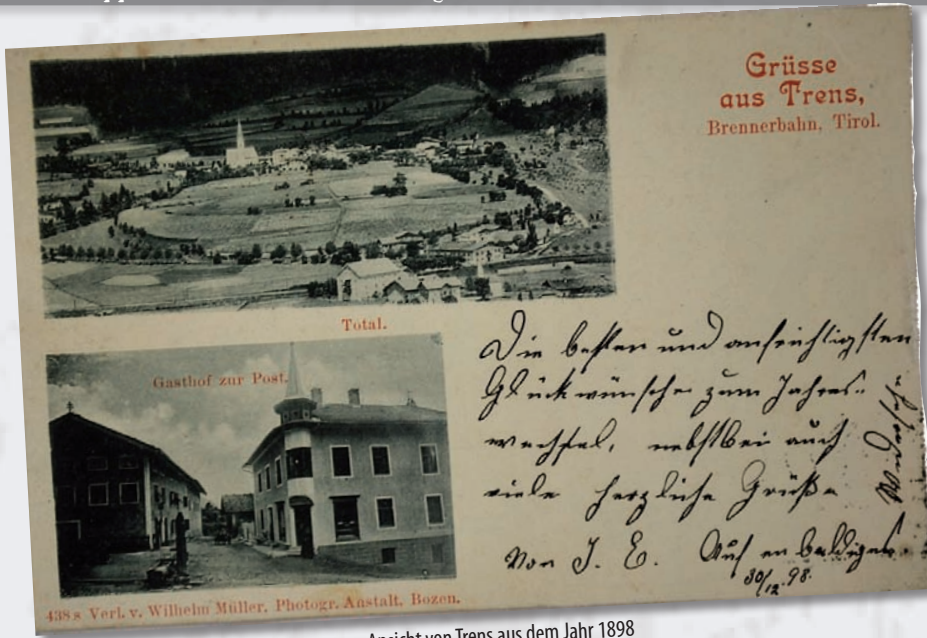 Grüsse
aus Trens,
Brennerbahn, Tirol.
Total.
Gasthof zur Post.
Die besten und aufrichtigsten
Glückwünsche zum Jahres-
wechsel, nebstbei auch
viele herzliche Grüße
von J. E. Auf en baldiges
Wiedersehn
30/12 98.
438 s Verl. v. Wilhelm Müller, Photogr. Anstalt, Bozen.
Ansicht von Trens aus dem Jahr 1898